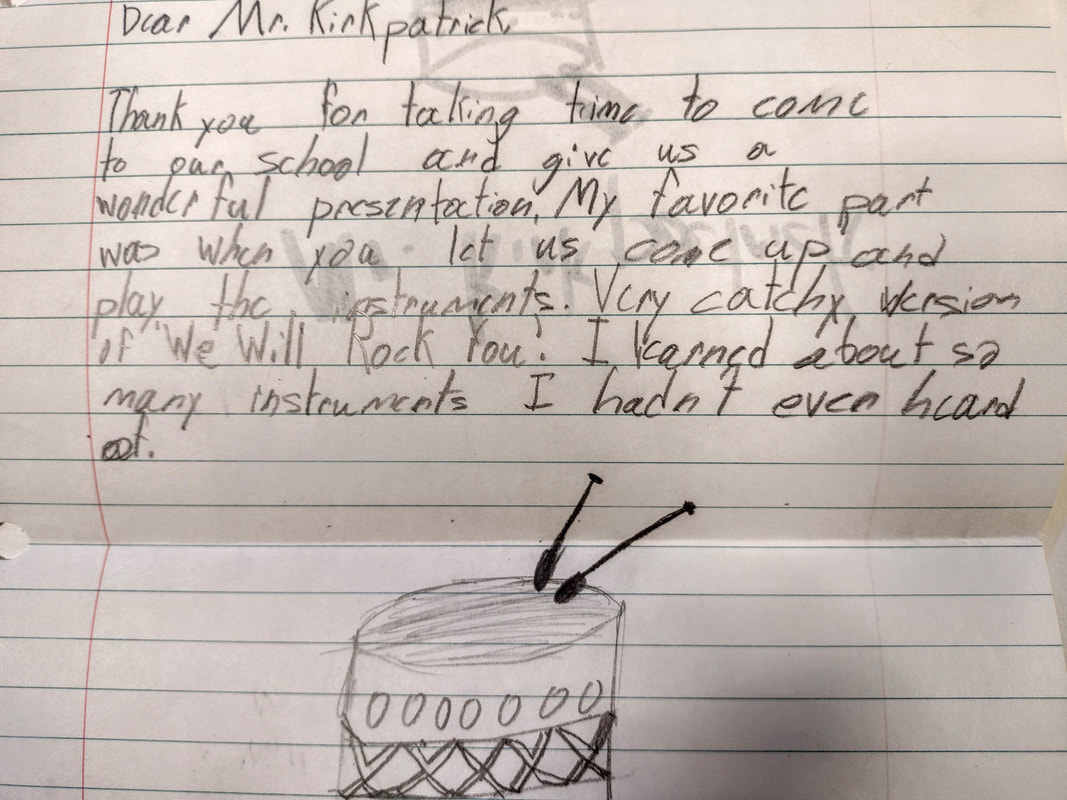 Dear Mr. Kirkpatrick,
Thank you for taking time to come
to our school and give us a
wonderful presentation. My favorite part
was when you let us come up and
play the instruments. Very catchy version
of "We Will Rock You". I learned about so
many instruments I hadn't even heard
of.